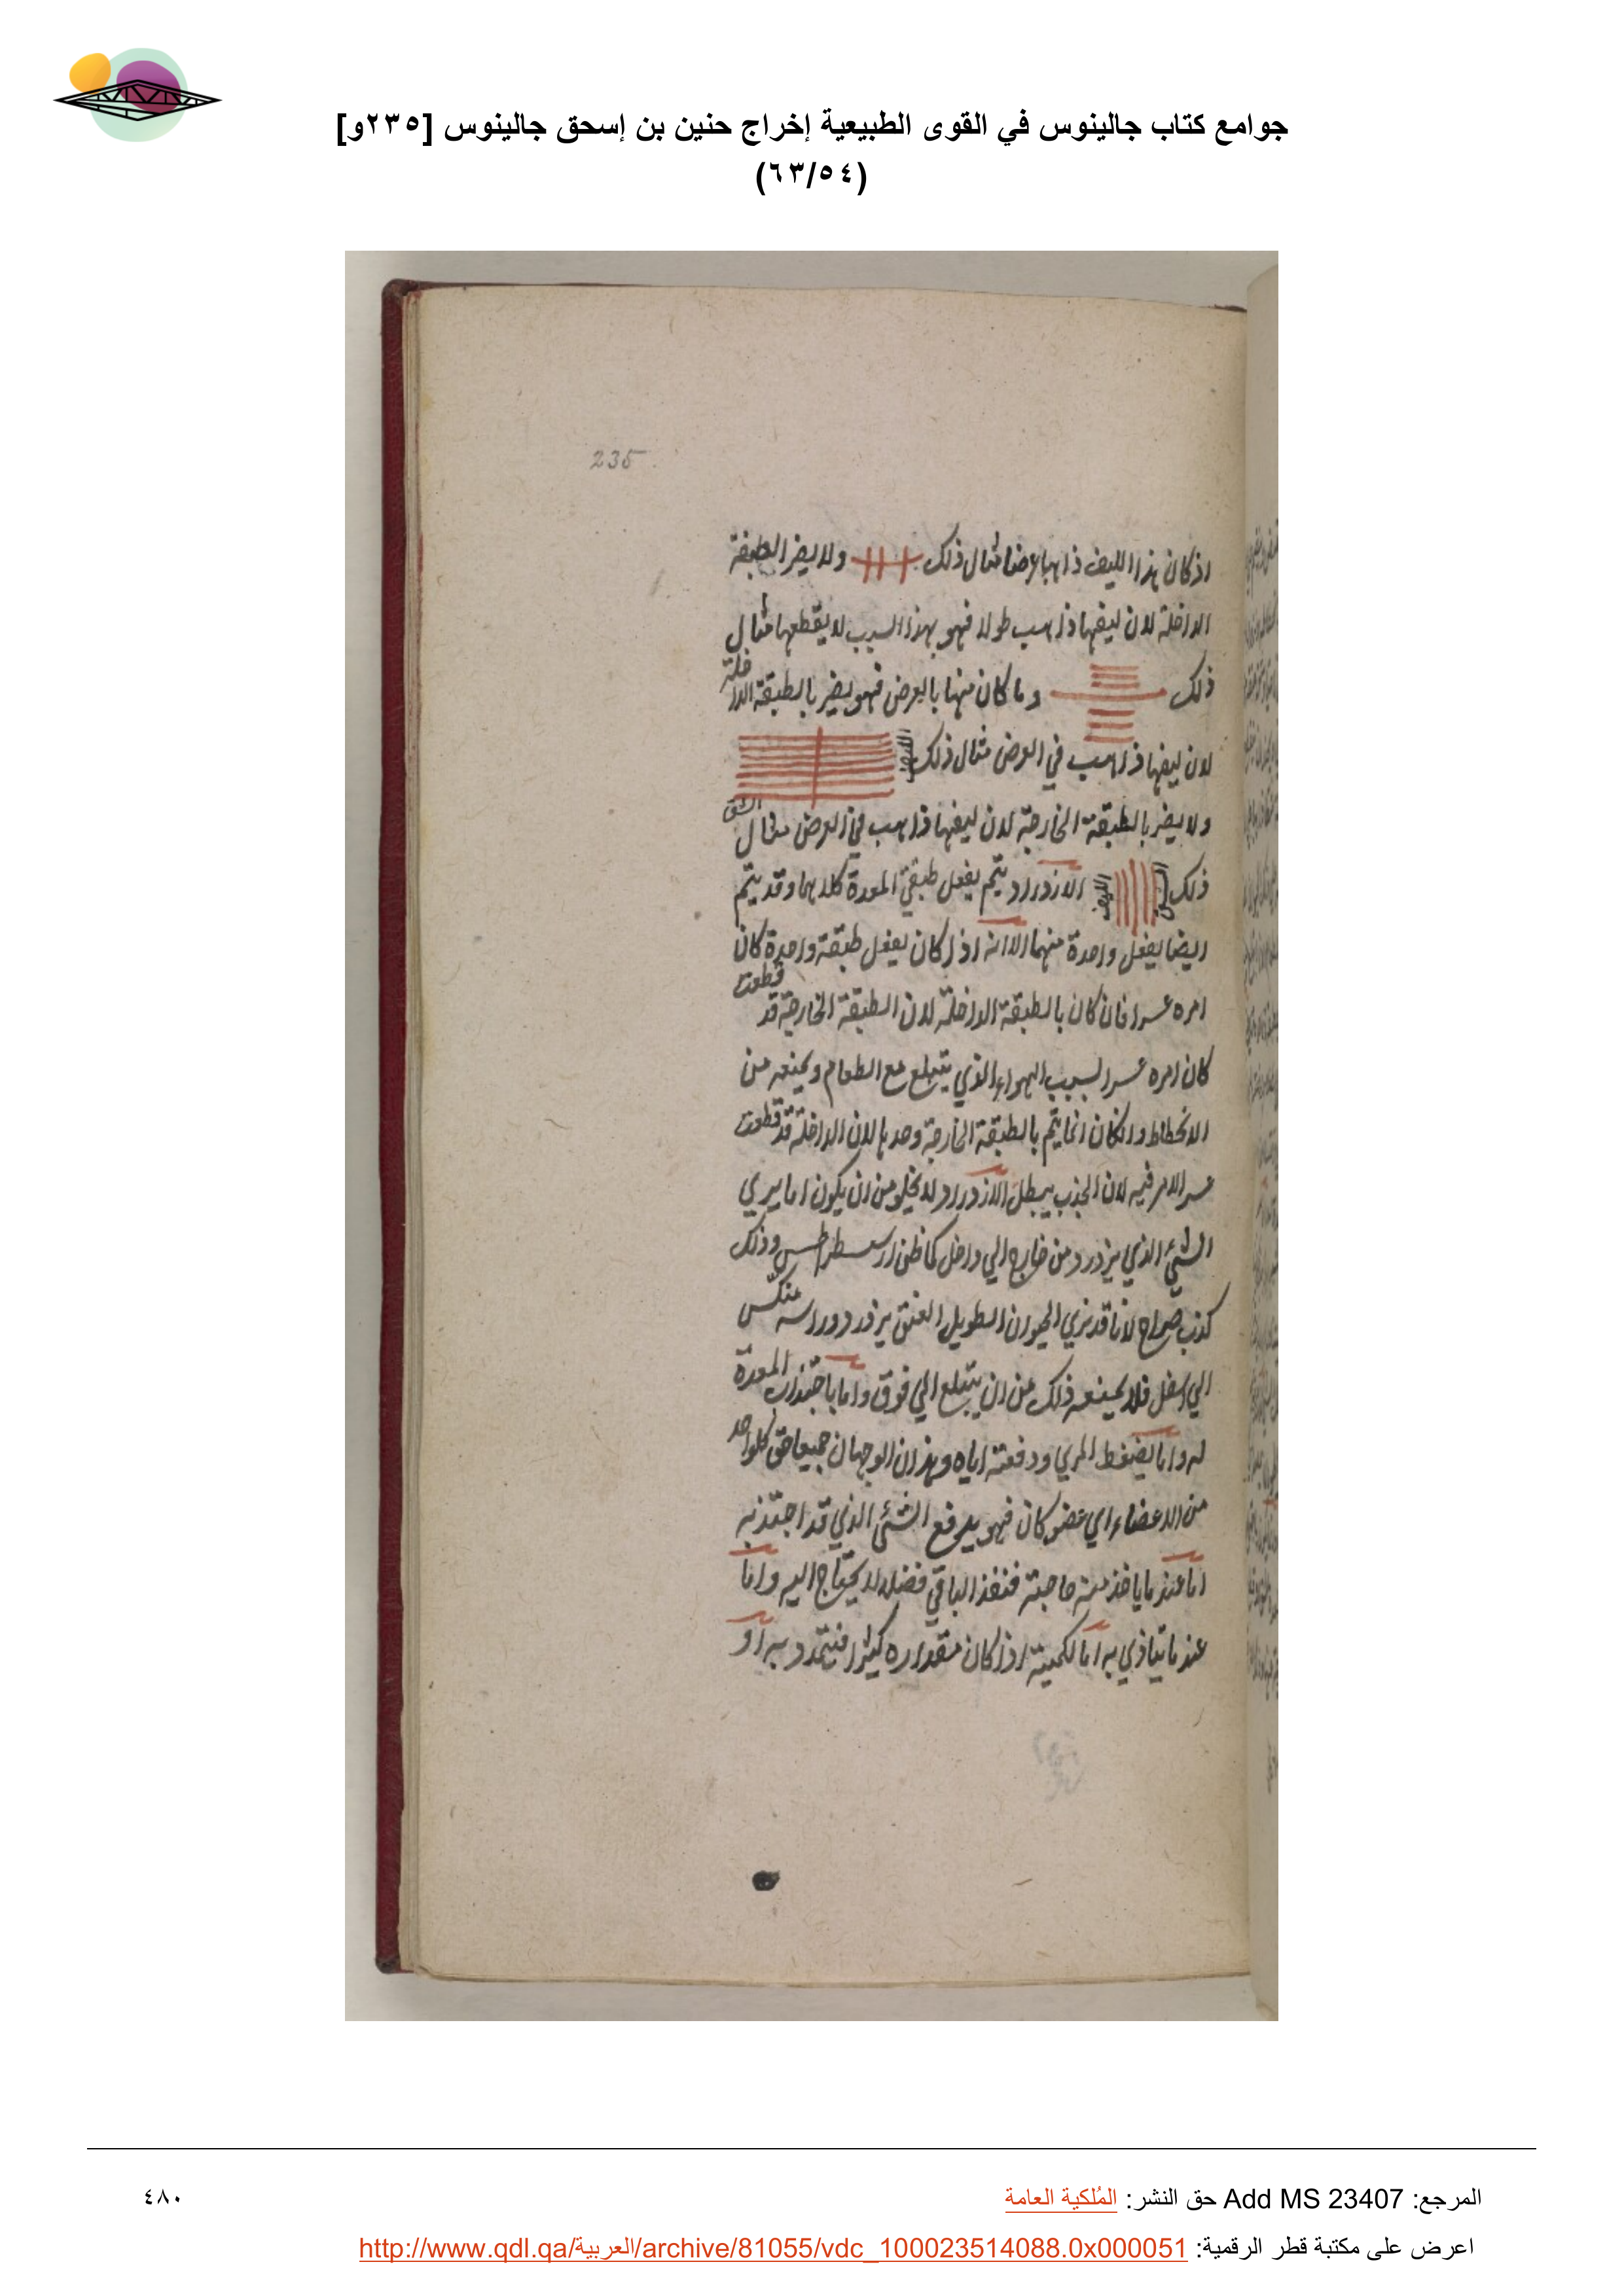 جوامع كتاب جالينوس في القوى الطبيعية إخراج حنين بن إسحق جالينوس [٢٣٥و]
(٦٣/٥٤)
235
اذ كان هذا الليف ذاهبا عرضا مثال ذلك ولا يضر الطبقة
الداخلة لان ليفها ذاهب طولا فهو بهذا السبب لا يقطعها مثال
ذلك وما كان منها بالعرض فهو يضر بالطبقة الداخلة
لان ليفها ذاهب في العرض مثال ذلك الليف
ولا يضر بالطبقة الخارجة لان ليفها ذاهب في العرض مثال الشق
ذلك الليف الازدراد يتم بفعل طبقتي المعدة كلاهما وقد يتم
ايضا بفعل واحدة منهما الا انه اذا كان بفعل طبقة واحدة كان
امره عسرا فان كان بالطبقة الداخلة لان الطبقة الخارجة قد قطعت
كان امره عسرا لسبب الهواء الذي يبتلع مع الطعام ويمنعه من
الانحطاط وان كان انما يتم بالطبقة الخارجة وحدها لان الداخلة قد قطعت
عسر الامر فيه لان الجذب يبطل الازدراد لا يخلو من ان يكون اما يرى
الشئ الذي يزدرد من خارج الي داخل كما ظن ارسطراطس وذلك
كذب صراح لانا قد نري الحيوان الطويل العنق يزدرد وراسه منكس
الي اسفل فلا يمنعه ذلك من ان يبتلع الي فوق واما باجتذاب المعدة
له واما بضغط المري ودفعته اياه وهذان الوجهان جميعا حق كل واحد
من الاعضاء اي عضو كان فهو يدفع الشئ الذي قد اجتذبه
اما عند ما ياخذ منه حاجته فنفذ الباقي فضلا لا يحتاج اليه واما
عند ما يتاذي به اما لكميته اذا كان مقداره كثيرا فيتمدد به او
المرجع: Add MS 23407 حق النشر: المُلكية العامة
٤٨٠
اعرض على مكتبة قطر الرقمية: http://www.qdl.qa/العربية/archive/81055/vdc_100023514088.0x000051